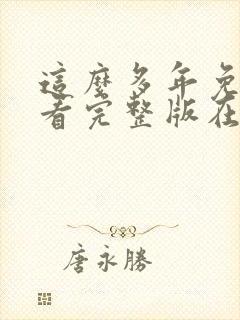 這麼多年免
看完整版在
唐永勝